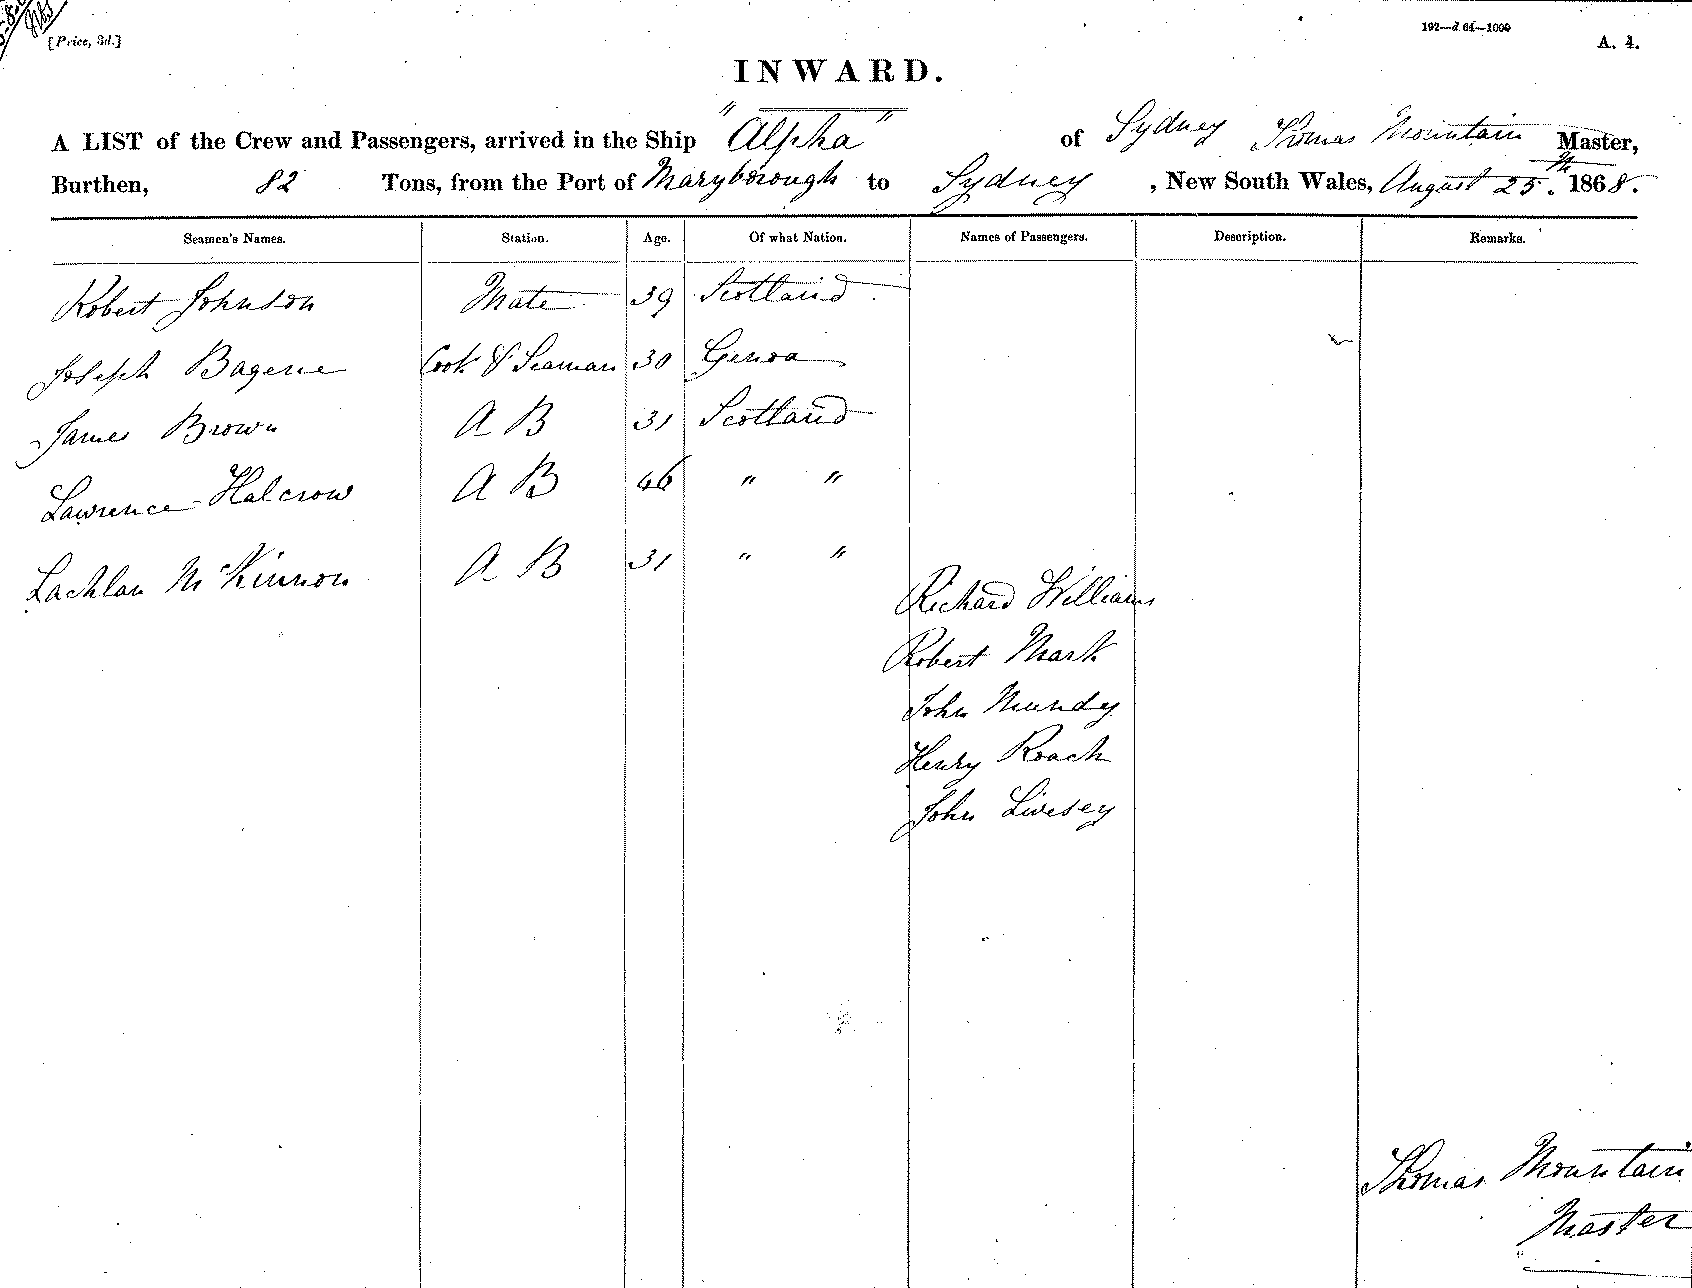 [Price, 3d.]
192—d 64—1000
A. 4.
INWARD.
A LIST of the Crew and Passengers, arrived in the Ship "Alpha" of Sydney Thomas Mountain Master,
Burthen, 82 Tons, from the Port of Maryborough to Sydney, New South Wales, August 25th. 1868.
Seamen's Names. Station. Age. Of what Nation. Names of Passengers. Description. Remarks.
Robert Johnson Mate 39 Scotland
Joseph Bagene Cook & Seaman 30 Genoa
James Brown A B 31 Scotland
Lawrence Halcrow A B 46 " "
Lachlan McKinnon A B 31 " "
Richard Williams
Robert Mark
John Mundy
Henry Roach
John Livesey
Thomas Mountain
Master